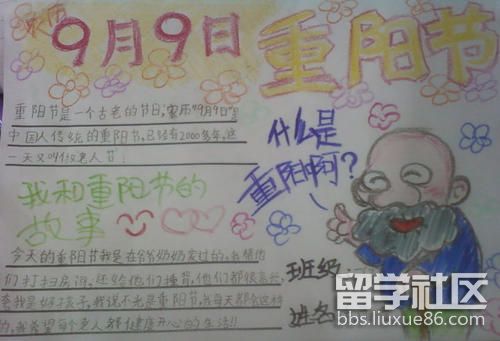 农历
9月9日
重阳节
重阳节是一个古老的节日,农历"9月9日"是
中国人传统的重阳节,已经有2000多年,这
一天又叫做老人节!
什么是
重阳啊?
我和重阳节的
故事
今天的重阳节我是在爷爷奶奶家过的,我帮他
们打扫房间,还给他们捶背,他们都很高兴,
我是好孩子,我说不光是重阳节,我每天都会这样
的,我希望每个老人都健康开心的生活!!
班级
姓名
留学社区
bbs.liuxue86.com